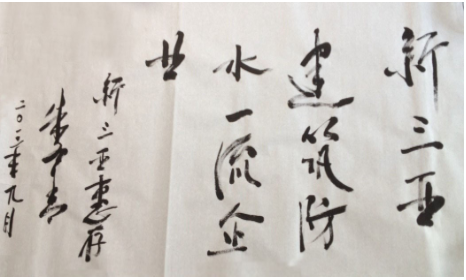 新三亚
建筑防
水一流企
业
新三亚惠存
二〇一三年九月